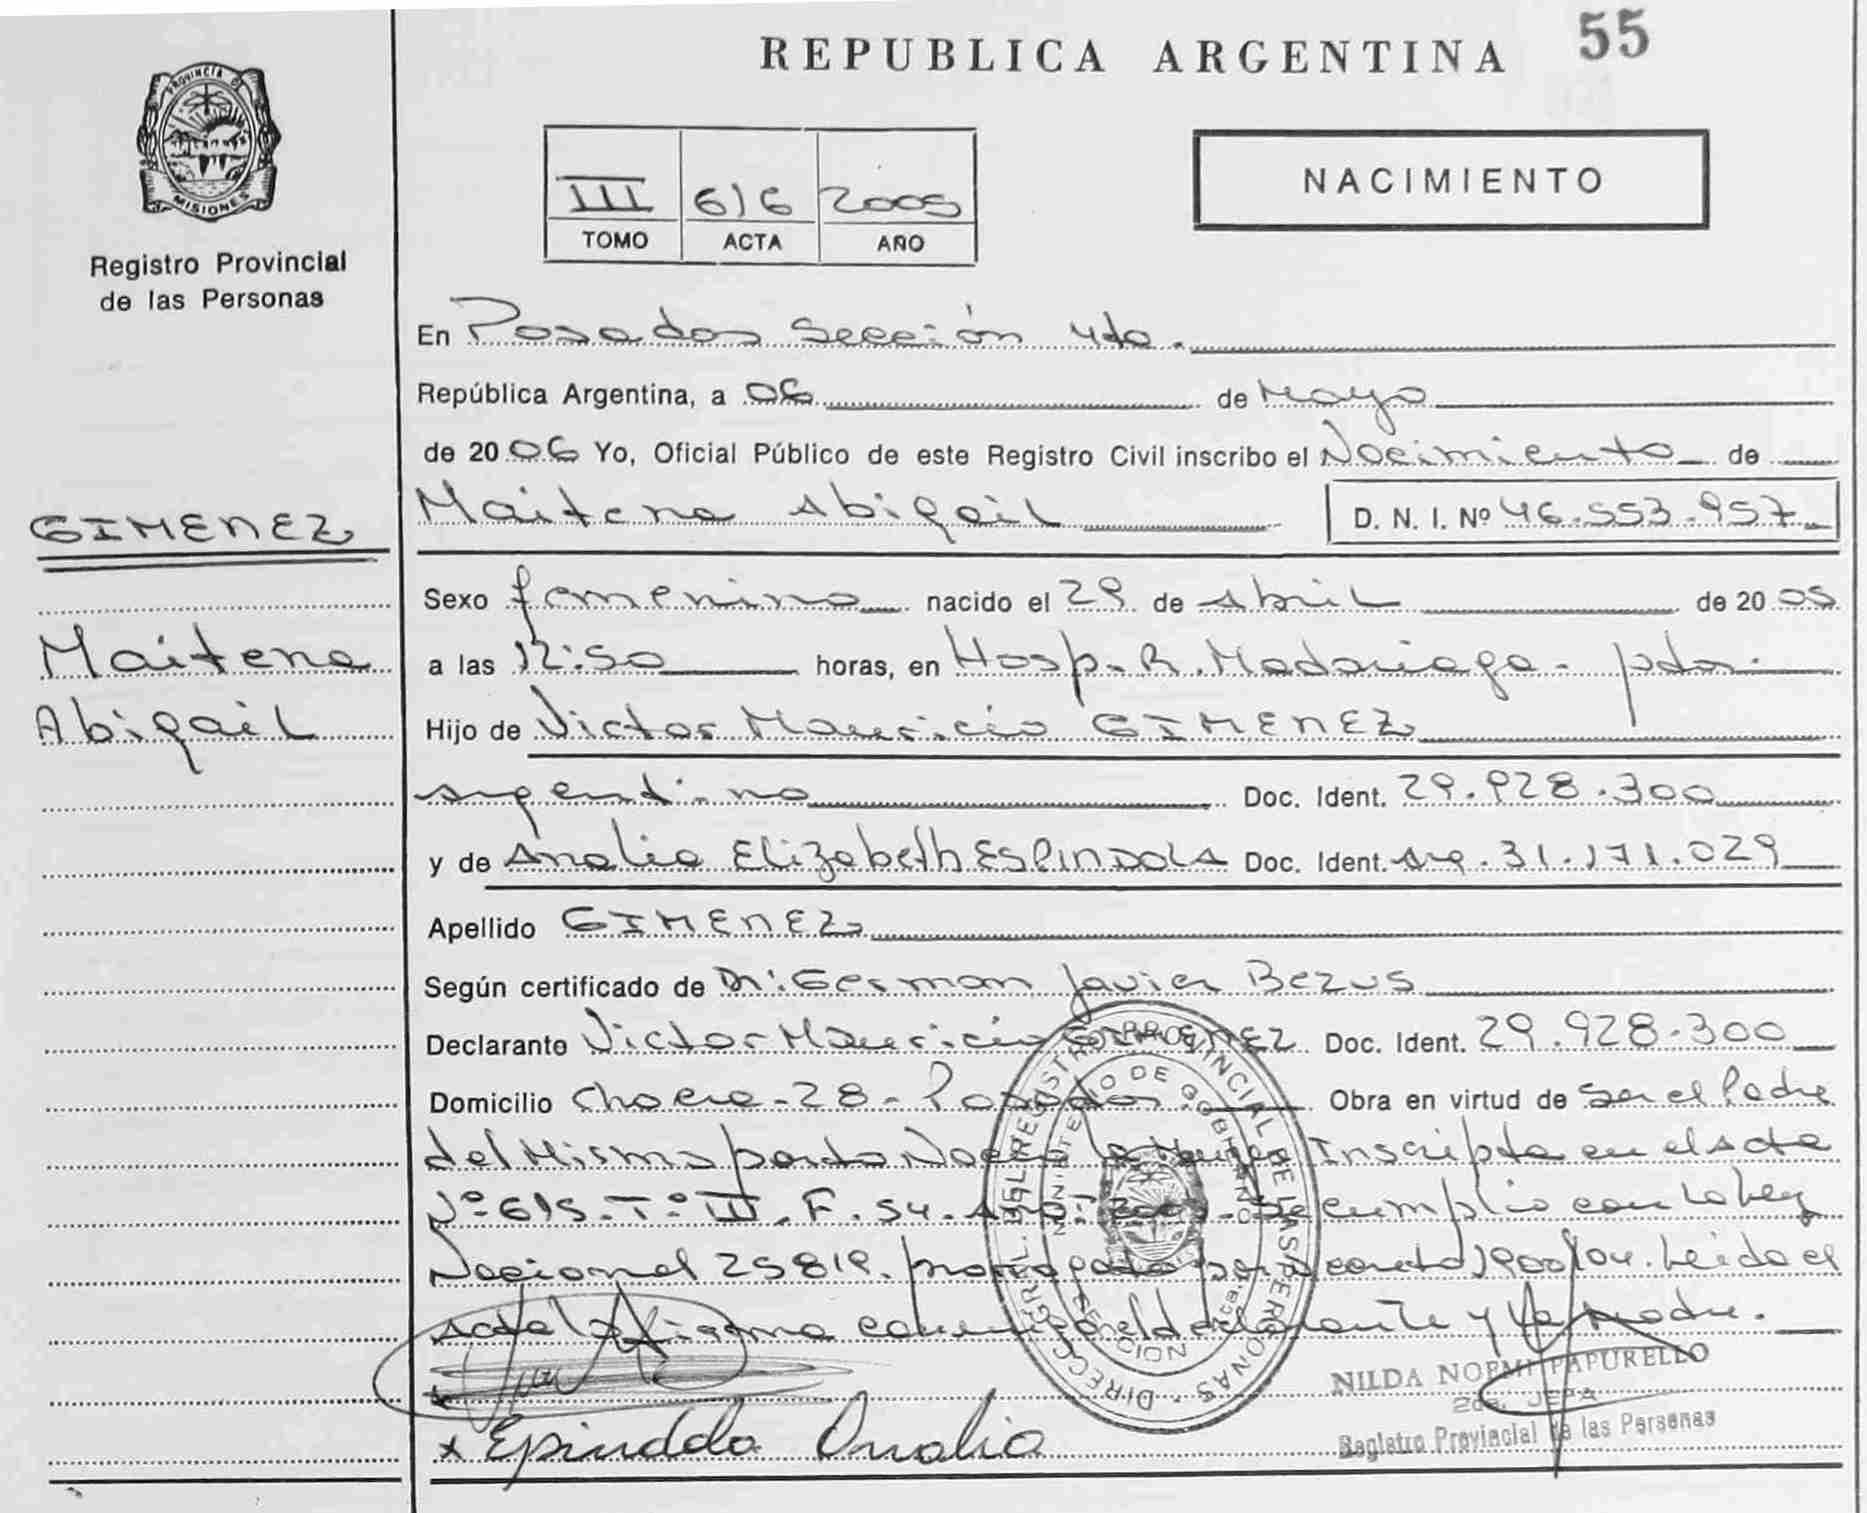 55
REPUBLICA ARGENTINA
PROVINCIA DE
MISIONES
Registro Provincial
de las Personas
III 616 2005
TOMO ACTA AÑO
NACIMIENTO
En Posadas Sección 4ta.
República Argentina, a 06 de Mayo
de 2006 Yo, Oficial Público de este Registro Civil inscribo el Nacimiento de
Maitena Abigail D. N. I. Nº 46.553.957
GIMENEZ
Maitena
Abigail
Sexo femenino nacido el 29 de Abril de 2005
a las 12:50 horas, en Hosp. R. Madariaga - pdas.
Hijo de Victor Mauricio GIMENEZ
argentino Doc. Ident. 29.928.300
y de Analia Elizabeth ESPINDOLA Doc. Ident. Arg. 31.171.029
Apellido GIMENEZ
Según certificado de Dr: German Javier Bezus
Declarante Victor Mauricio GIMENEZ Doc. Ident. 29.928.300
Domicilio Chacra-28-Posadas Obra en virtud de Ser el Padre
del Mismo parto Nació la Inscripta en el Acta
Nº 615. Tº III. F. 54. Año: 2005. Se cumplio con la ley
Nacional 25819. por decreto 1900/04. Leida el
Acta la firma el declarante y la Madre.
DIRECC. GRAL. DEL REGISTRO PROVINCIAL DE LAS PERSONAS
MINISTERIO DE GOBIERNO
NILDA NOEMI PAPURELLO
2da. JEFA
Registro Provincial de las Personas
x Epindola Analia